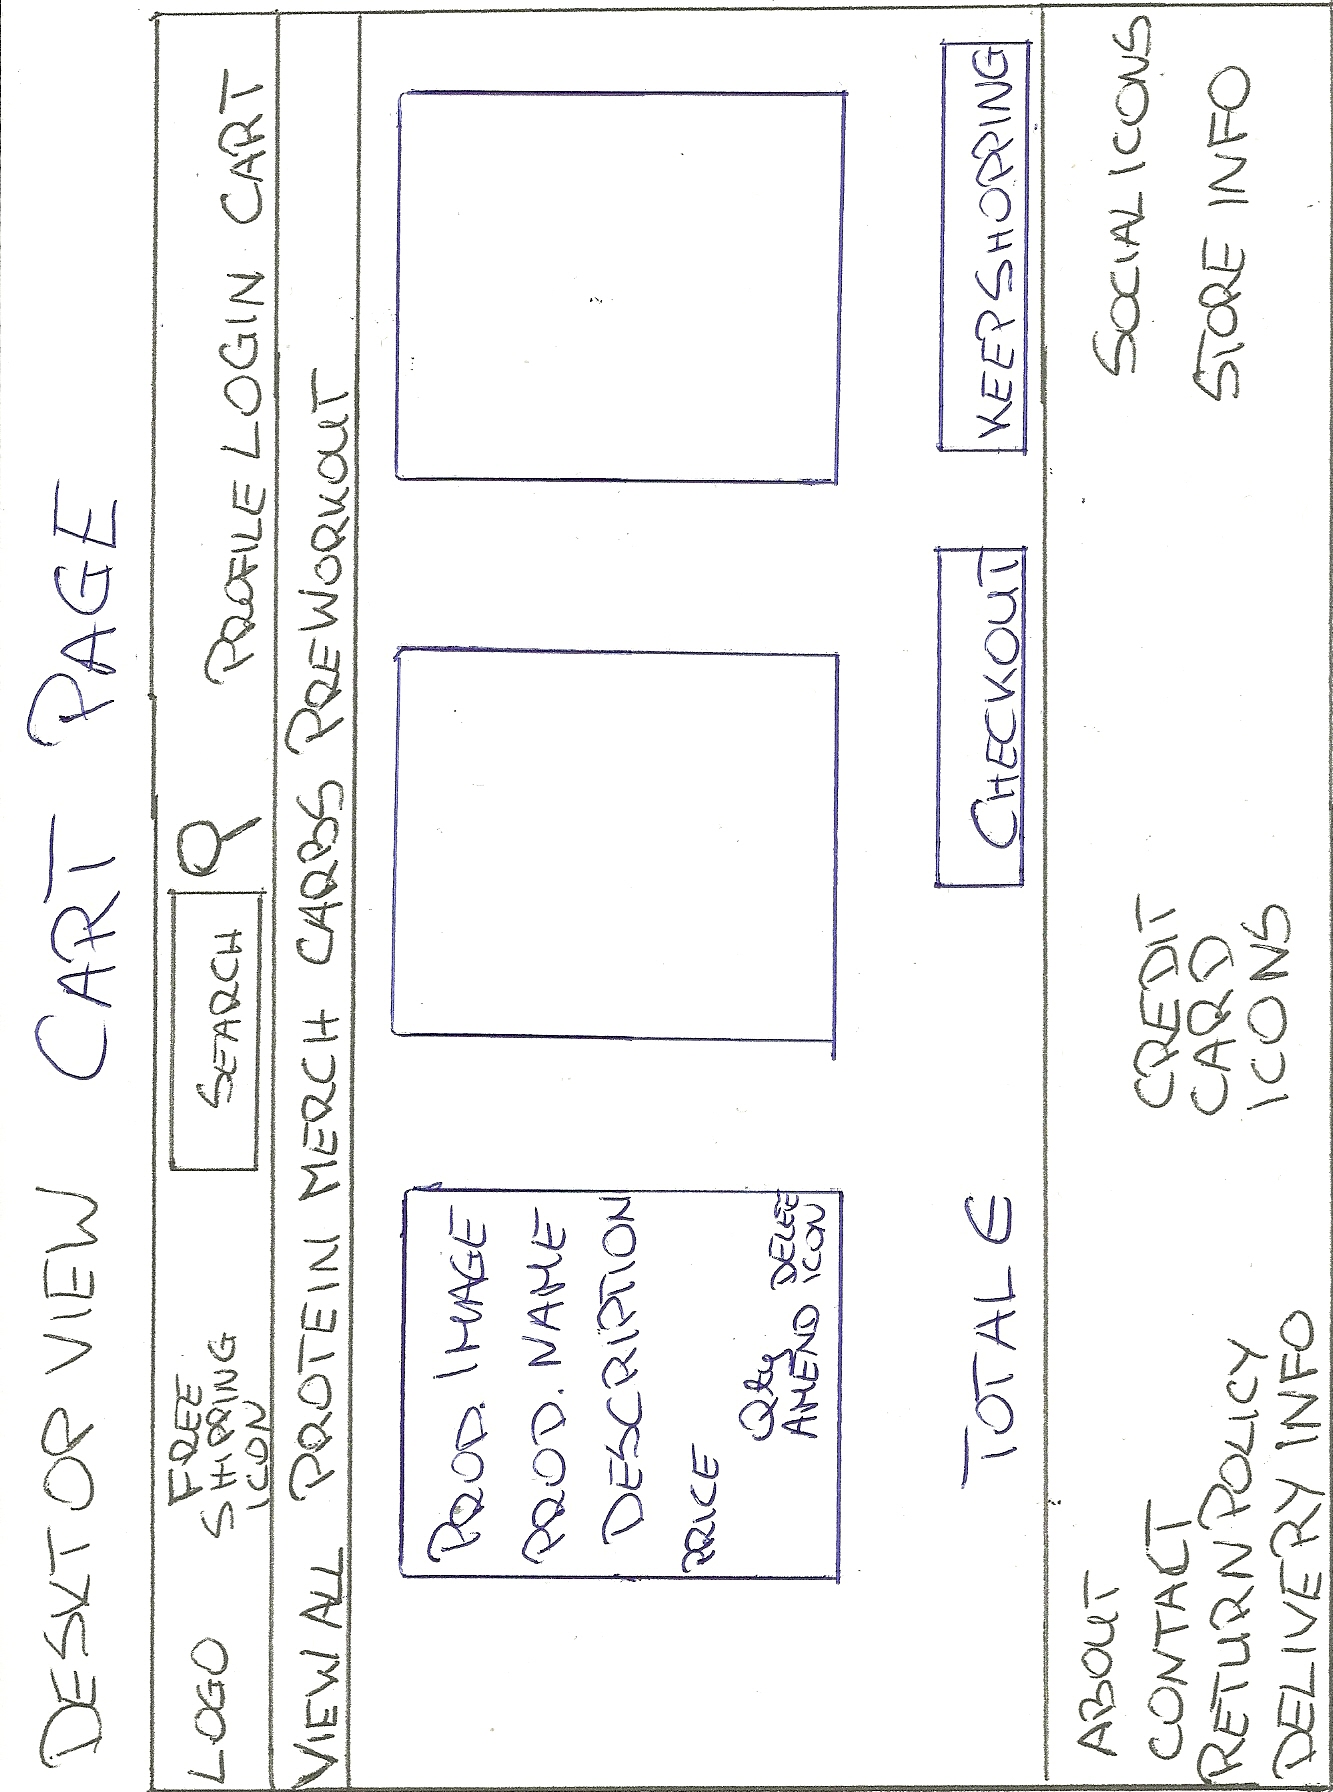 DESKTOP VIEW CART PAGE
LOGO FREE SHIPPING ICON SEARCH PROFILE LOGIN CART
VIEW ALL PROTEIN MERCH CARBS PREWORKOUT
PROD. IMAGE
PROD. NAME
DESCRIPTION
PRICE
Qty AMEND
DELETE ICON
TOTAL €
CHECKOUT
KEEP SHOPPING
ABOUT
CONTACT
RETURN POLICY
DELIVERY INFO
CREDIT
CARD
ICONS
SOCIAL ICONS
STORE INFO